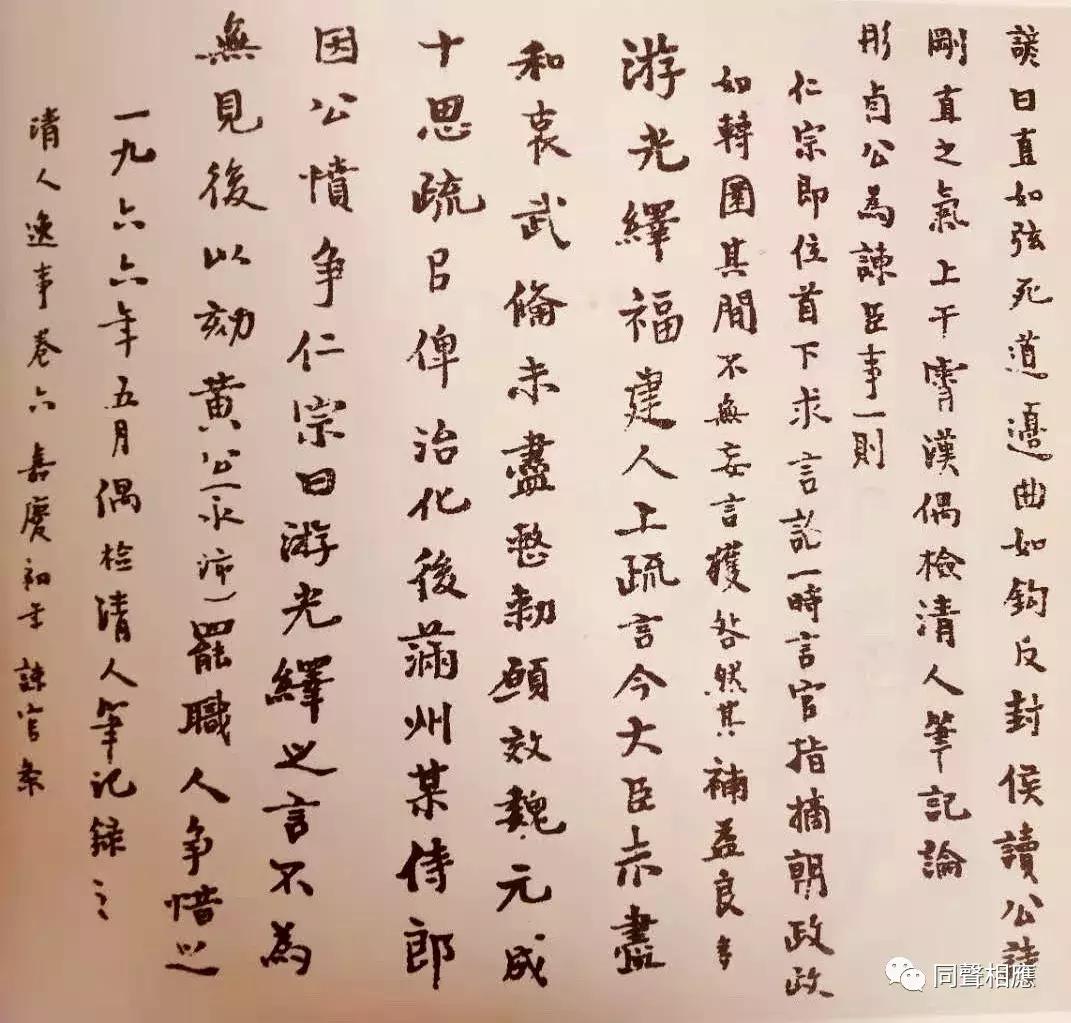 諺曰直如弦死道邊曲如鉤反封侯讀公詩
剛直之氣上干霄漢偶檢清人筆記論
彤卣公為諫臣事一則
仁宗即位首下求言詔一時言官指摘朝政政
如轉圜其間不無妄言獲咎然其補益良多
游光繹福建人上疏言今大臣未盡
和衷武備未盡整勑願效魏元成
十思疏以俾治化後滿州某侍郎
因公憤爭仁宗曰游光繹之言不為
無見後以劾黃公(永沛)罷職人爭惜之
一九六六年五月偶检清人筆记録之
清人逸事卷六嘉慶初年諫官条
同聲相應